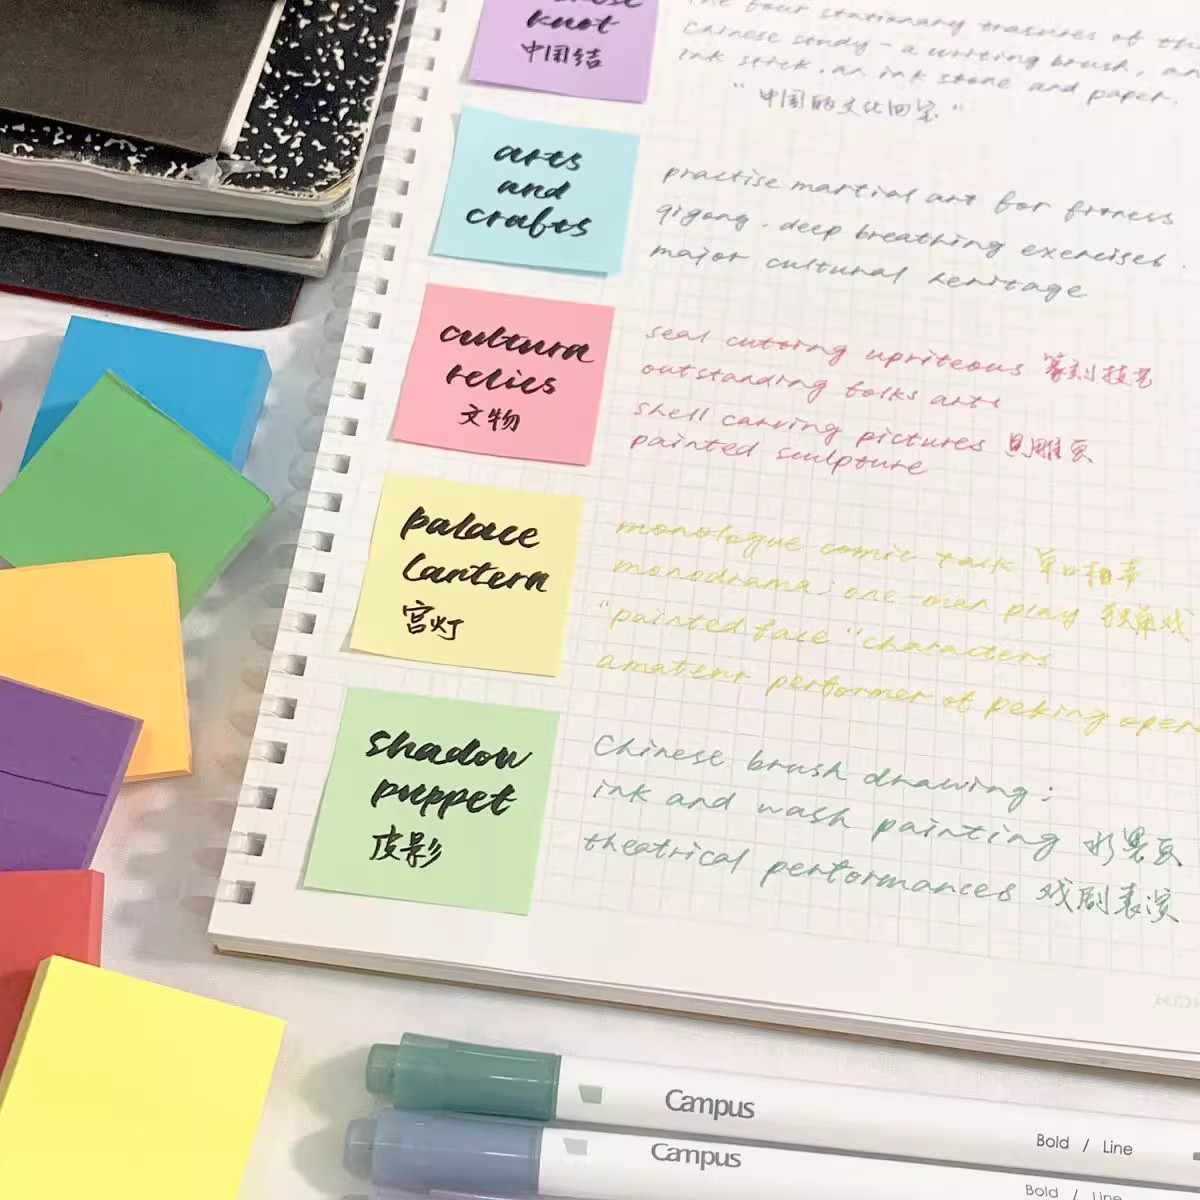 knot
中国结
The four stationary trasures of the
Chinese study - a writing brush, an
ink stick, an ink stone and paper.
"中国的文化四宝"
arts
and
crafts
practise martial art for fitness
qigong. deep breathing exercises.
major cultural heritage
cultura
relics
文物
seal cutting upriteous 篆刻技艺
outstanding folks arts
shell carving pictures 贝雕画
painted sculpture
palace
lantern
宫灯
monologue comic talk 单口相声
monodrama: one-man play 独角戏
"painted face" characters
amateur performer of peking oper
shadow
puppet
皮影
Chinese brush drawing:
ink and wash painting 水墨画
theatrical performances 戏剧表演
Campus
Bold / Line
Campus
Bold / Line